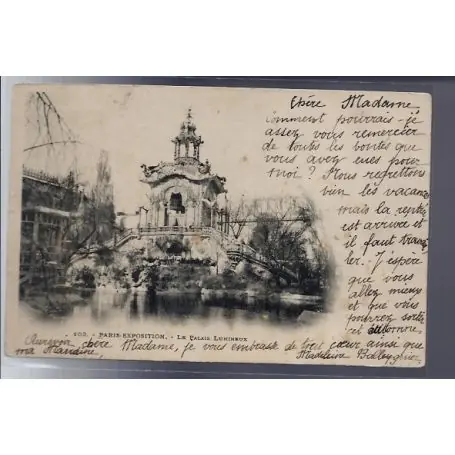 Chère Madame
Comment pourrais-je
assez vous remercier
de toutes les bontés que
vous avez eues pour
moi ? Nous regrettons
bien les vacances
mais la rentrée
est arrivée et
il faut travail
ler. J'espère
que vous
allez mieux
et que vous
pourrez sortir
cet automne.
PARIS-EXPOSITION. - LE PALAIS LUMINEUX
chère Madame, je vous embrasse de tout cœur ainsi que
ma Madeleine